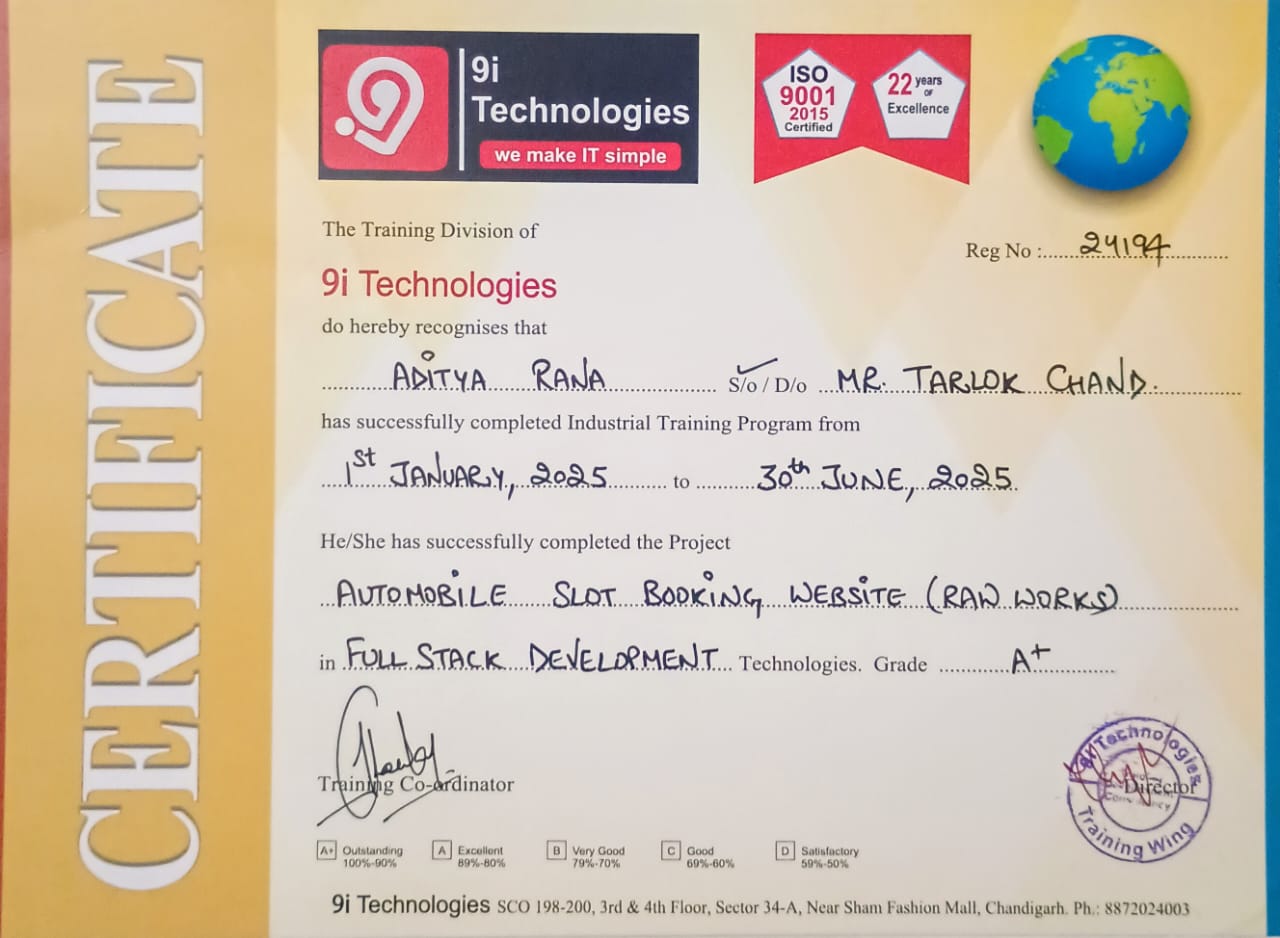 CERTIFICATE
9i
Technologies
we make IT simple
ISO
9001
2015
Certified
22 years
OF
Excellence
The Training Division of
Reg No :......24194............
9i Technologies
do hereby recognises that
ADITYA RANA S/o / D/o MR. TARLOK CHAND.
has successfully completed Industrial Training Program from
1st JANUARY, 2025 to 30th JUNE, 2025
He/She has successfully completed the Project
AUTOMOBILE SLOT BOOKING WEBSITE (RAW WORKS)
in FULL STACK DEVELOPMENT Technologies. Grade A+
9i Technologies
Training Wing
Training Co-ordinator
Director
A+ Outstanding
100%-90%
A Excellent
89%-80%
B Very Good
79%-70%
C Good
69%-60%
D Satisfactory
59%-50%
9i Technologies SCO 198-200, 3rd & 4th Floor, Sector 34-A, Near Sham Fashion Mall, Chandigarh. Ph.: 8872024003